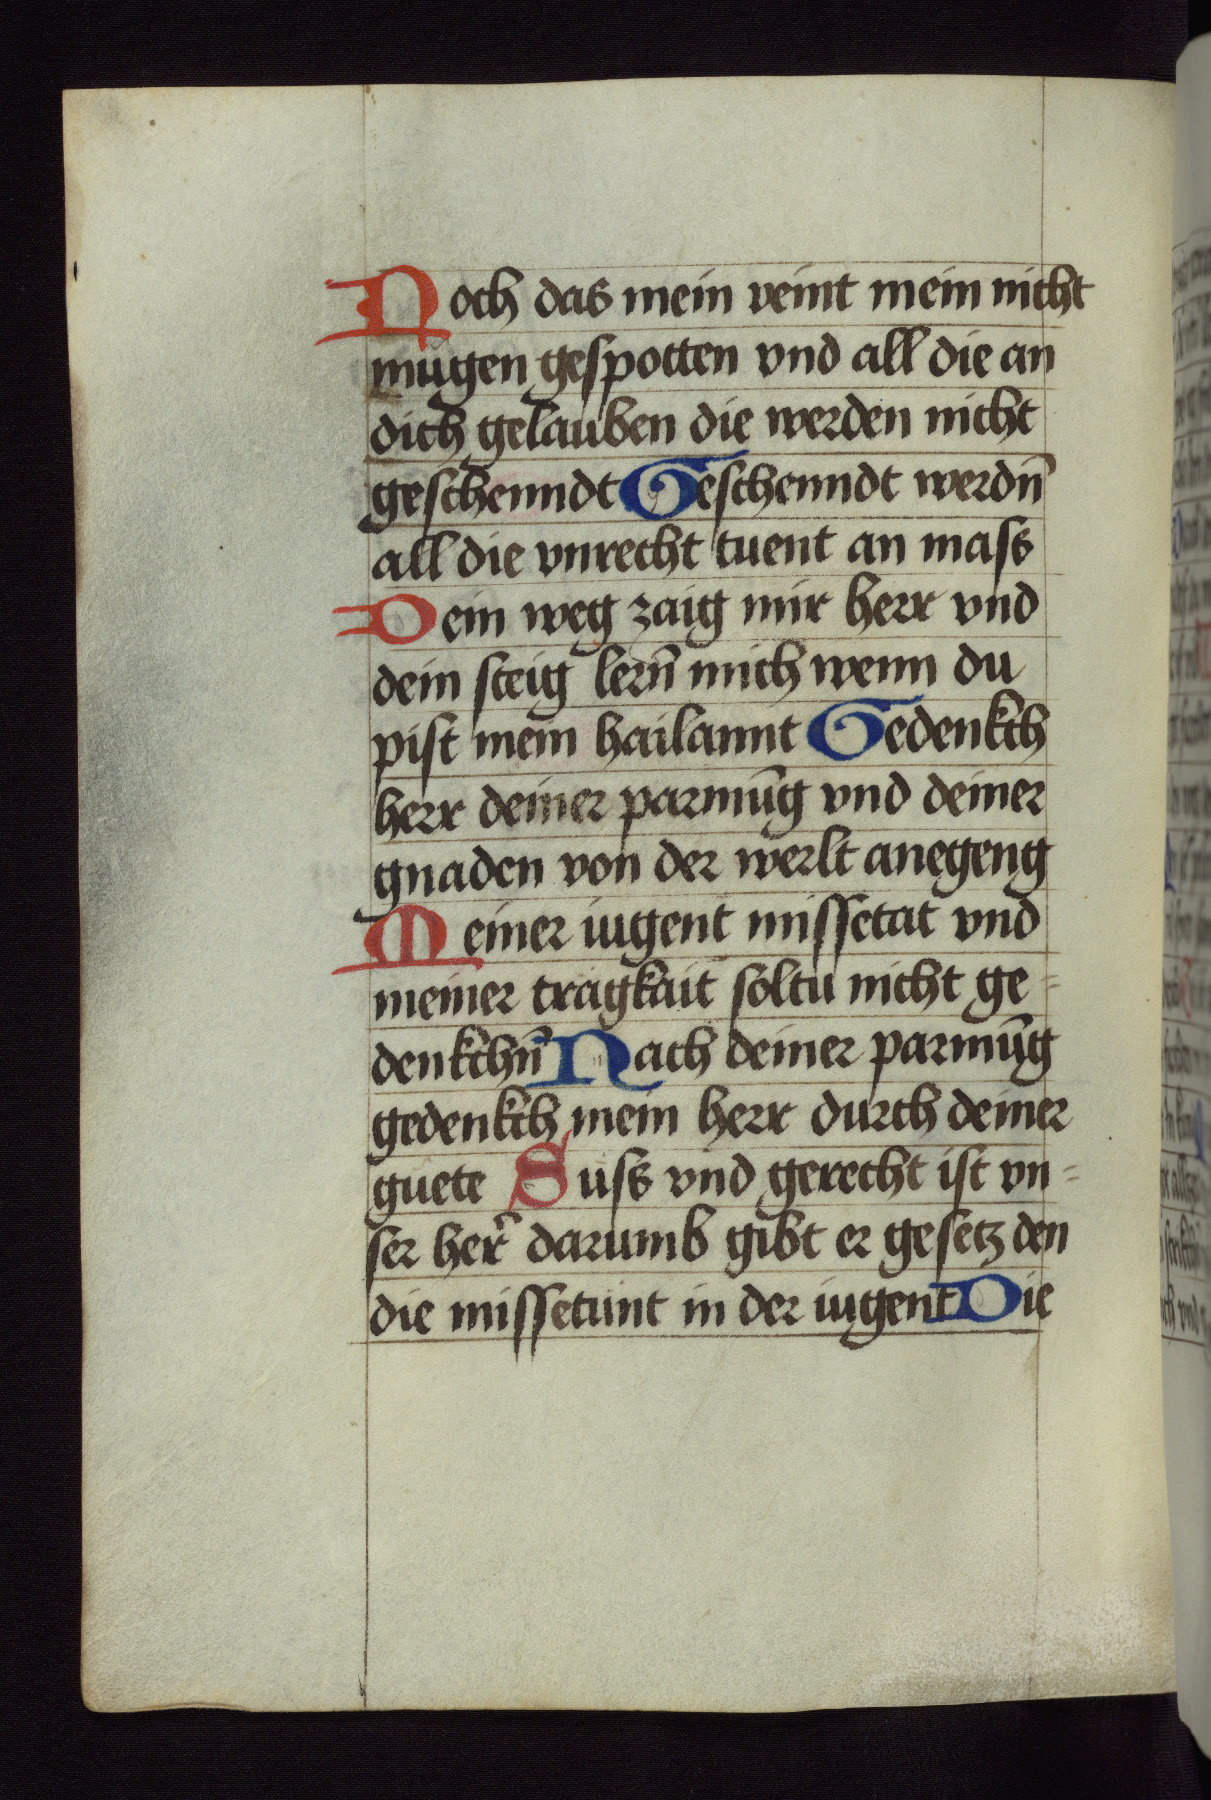 Noch das mein veint mein nicht
mugen gespotten vnd all die an
dich gelauben die werden nicht
geschenndt Geschenndt werdn̄
all die vnrecht tuent an mass
Dein weg zaig mir herr vnd
dein steig lern̄ mich wenn du
pist mein hailannt Gedenkch
herr deiner parmūg vnd deiner
gnaden von der werlt anegeng
Meiner iugent missetat vnd
meiner tragkait soltu nicht ge-
denkchn̄ Nach deiner parmūg
gedenkch mein herr durch deiner
guete Suss vnd gerecht ist vn-
ser her̄ darumb gibt er gesetz den
die missetunt in der iugent Die